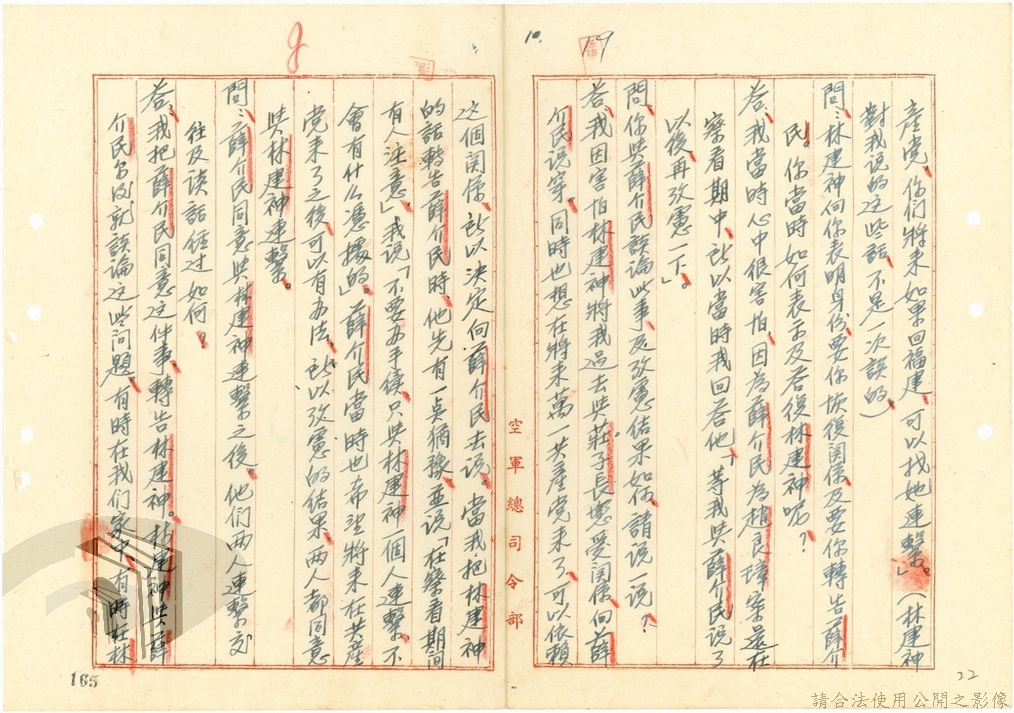 10.
19
產党、你们將來如果回福建、可以找她連繫。」(林建神
對我说的这些話、不是一次談的)
問:林建神向你表明身份、要你恢復関係、及要你轉告薛介
民。你當時如何表示及答復林建神呢?
答、我當時心中很害怕、因為薛介民為趙良璋案還在
察看期中、所以當時我回答他、「等我與薛介民说了
以後、再攷慮一下」。
問、你與薛介民談論此事及攷慮結果如何、請说一说?
答、我因害怕林建神將我过去與莊子長 受関係、向薛
介民说穿。同時也想在將來萬一共產党來了、可以依賴
空軍總司令部
这個関係、所以決定向薛介民去说。當我把林建神
的話轉告薛介民時、他先有一点猶豫、並说「在察看期间
有人注意、」我说「不要办手續、只與林建神一個人連繫、不
會有什么憑據的」。薛介民當時也希望將來在共產
党來了之後、可以有办法、所以攷慮的結果、两人都同意
與林建神連繫。
問:薛介民同意與林建神連繫之後。他们两人連繫交
往及談話經过如何?
答、我把薛介民同意这件事、轉告林建神。林建神與薛
介民 就談論这些问題、有時在我们家中、有時在林
165
22
請合法使用公開之影像